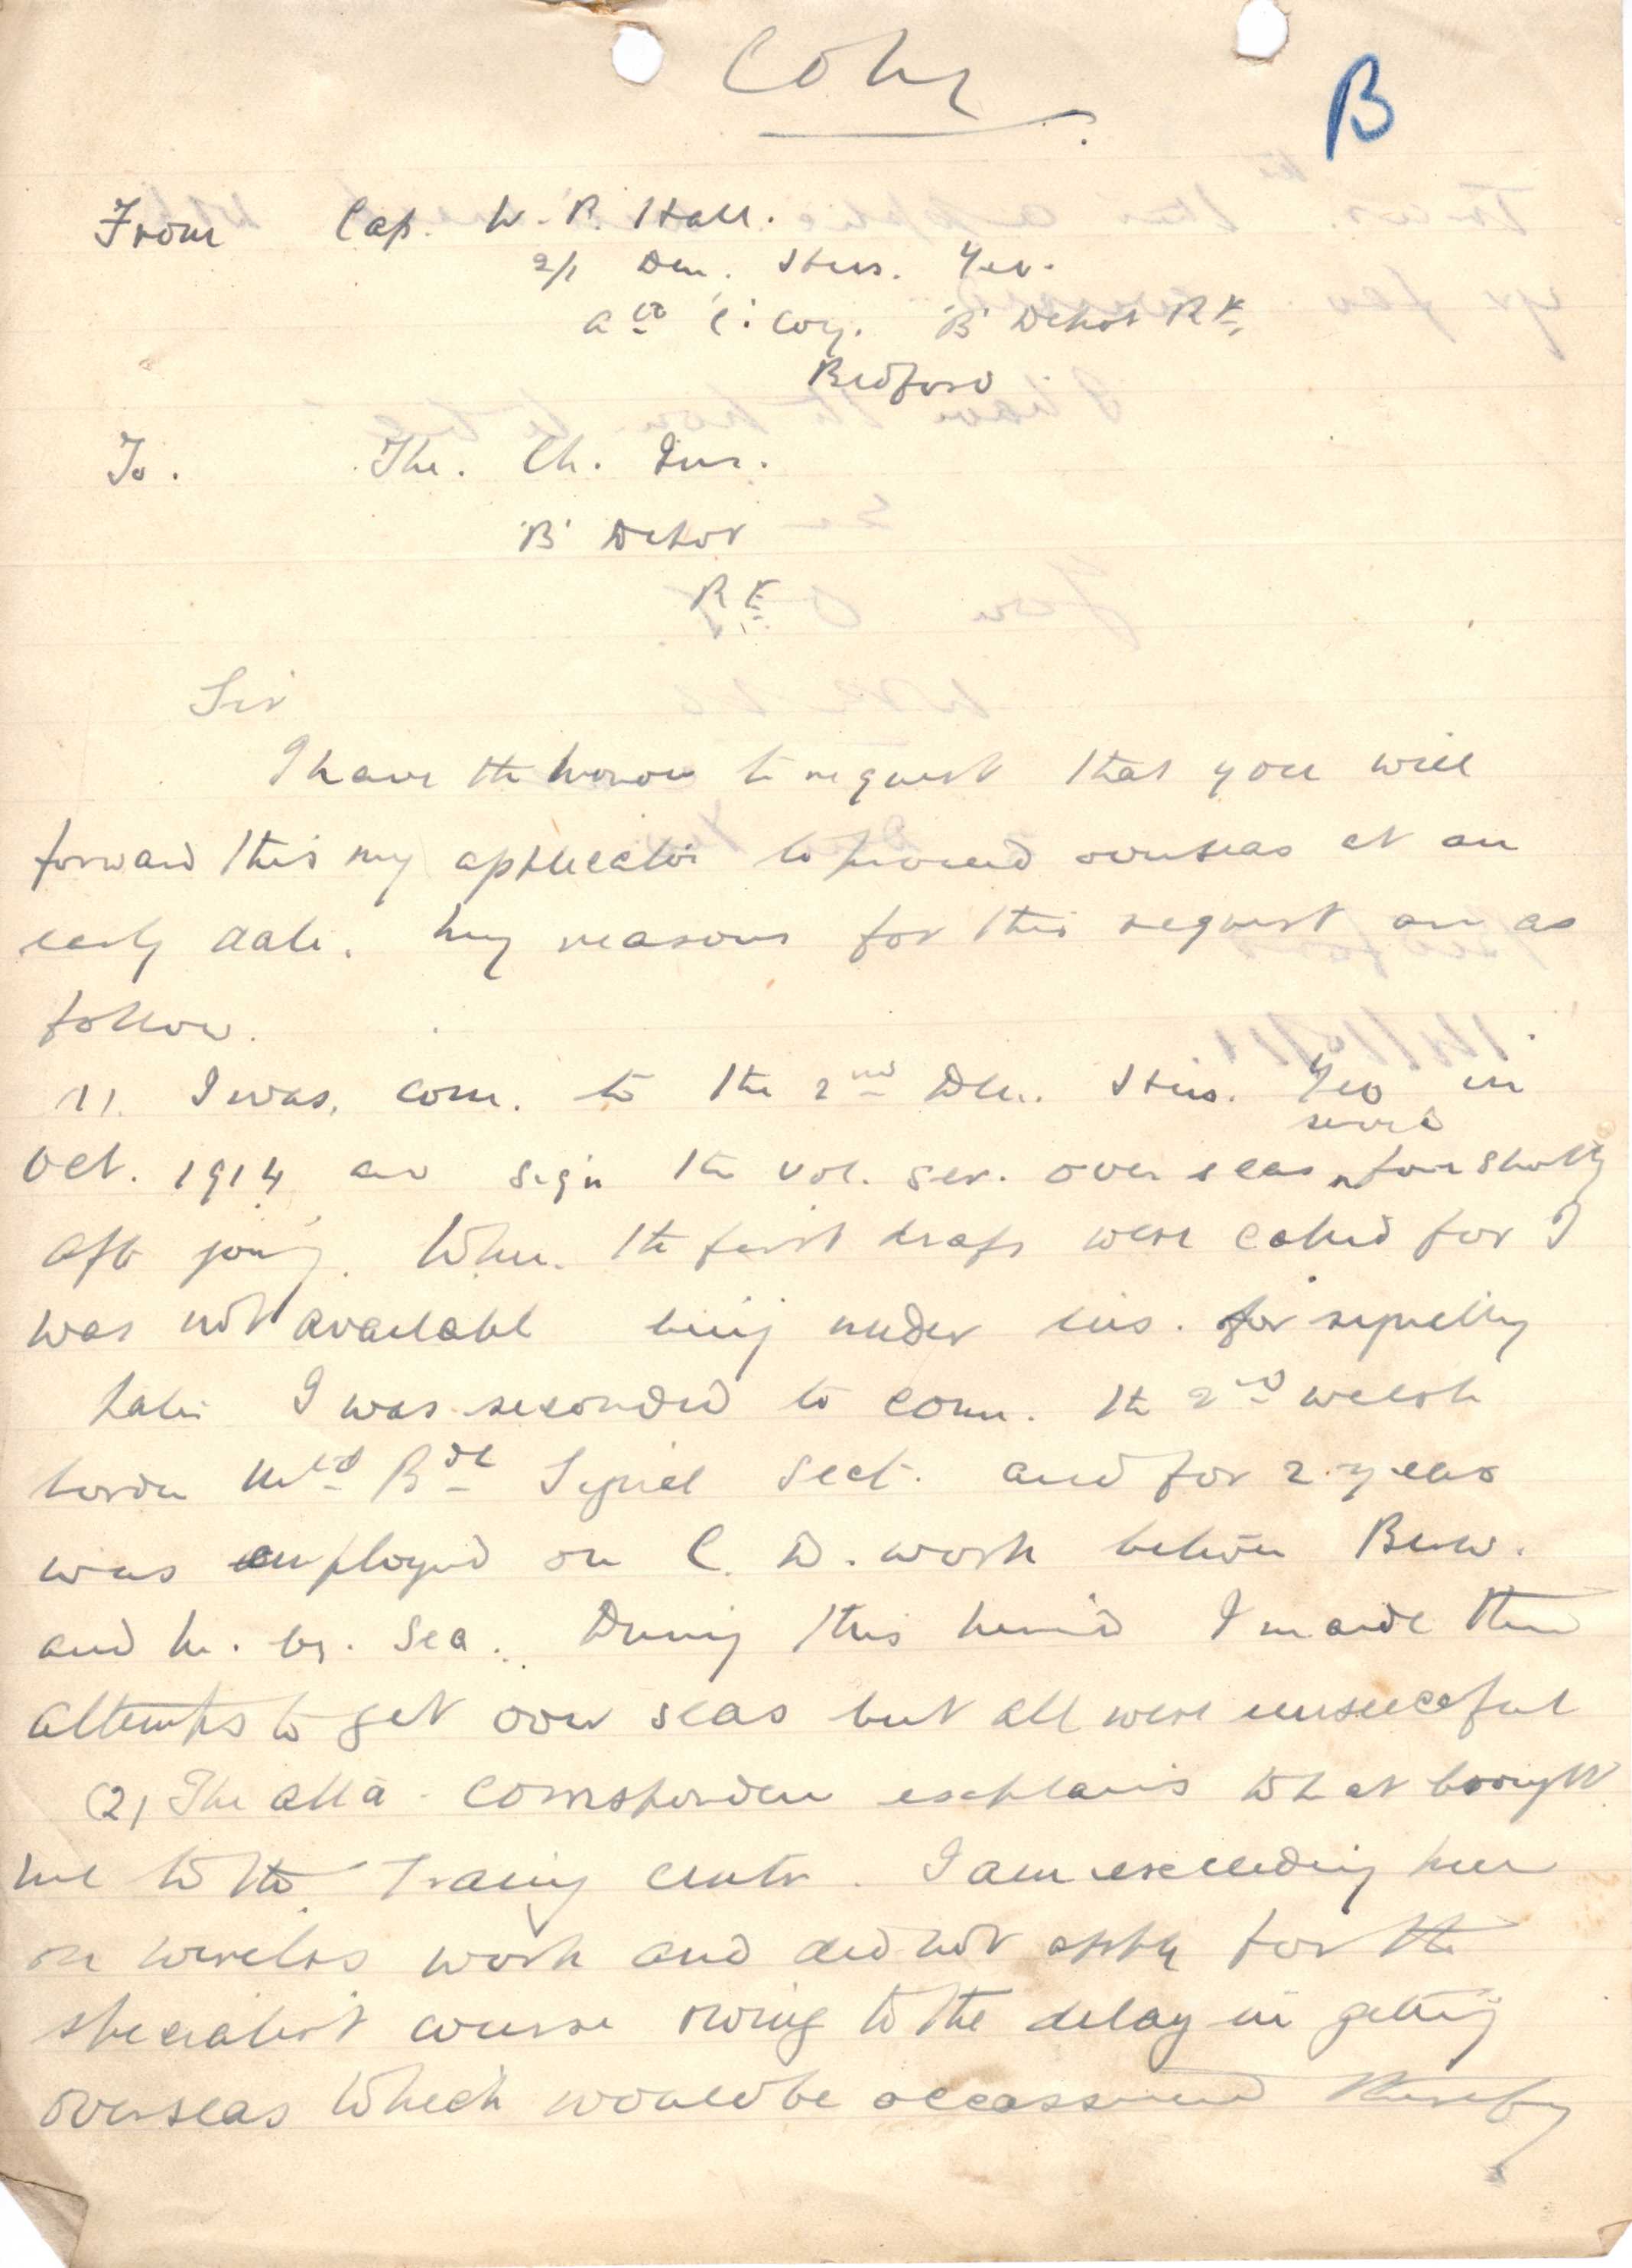 Copy
B
From Capt. W. R. Hall.
2/1 Den. Hus. Yeo.
att 'C' Coy. 'B' Depot RE.
Bedford
To. The. Ch. Ins.
'B' Depot
RE
Sir
I have the honour to request that you will
forward this my application to proceed overseas at an
early date. My reasons for this request are as
follow.
(1) I was. com. to the 2nd Den. Hus. Yeo in
Oct. 1914 and sign the vol. ser. over seas service form shortly
aft joing. When. the first drafts were called for I
was not available being under ins. for signalling
Later I was seconded to com. the 2nd Welsh
border Mtd Bde Signal Sect. and for 2 years
was employed on C. D. work between Berw.
and Sea. During this period I made three
attempts to get over seas but all were unsuccessful
(2) The atta. correspondence explains what brought
me to the Traing Centre. I am excluding here
on wireless work and did not apply for the
specialist course owing to the delay in getting
overseas which would be occassioned thereby